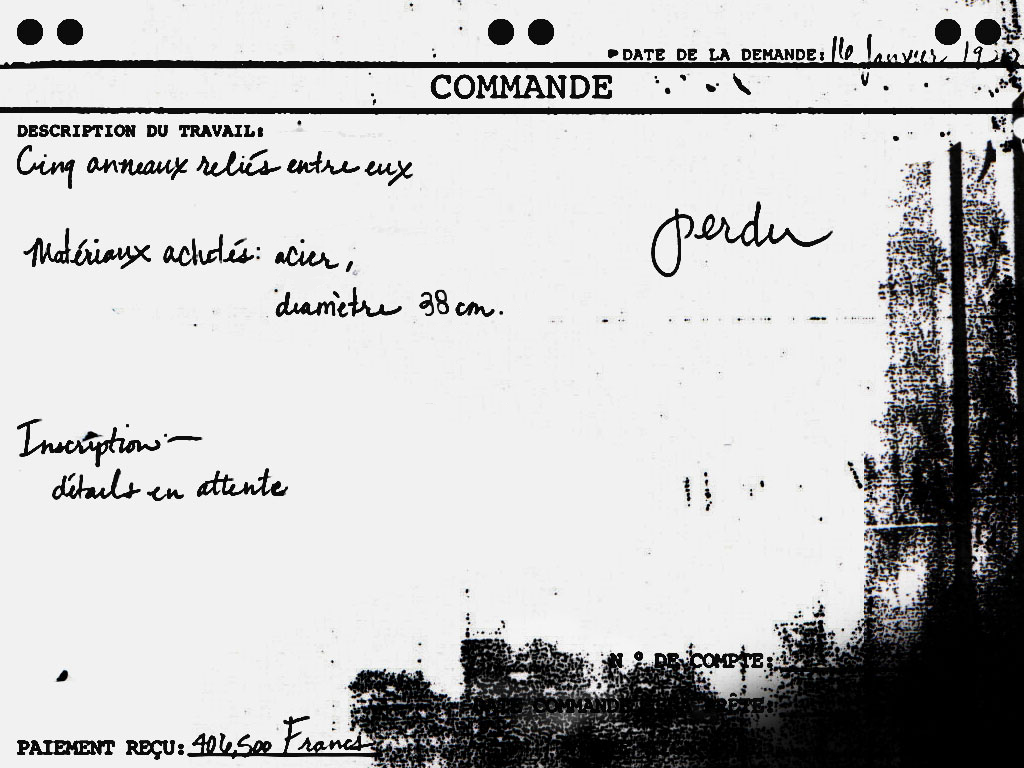 DATE DE LA DEMANDE: 16 Janvier 19
COMMANDE
DESCRIPTION DU TRAVAIL:
Cinq anneaux reliés entre eux
perdu
Matériaux achetés: acier,
diamètre 38 cm.
Inscription —
détails en attente
N° DE COMPTE:
COMMANDE
PAIEMENT REÇU: 406,500 Francs